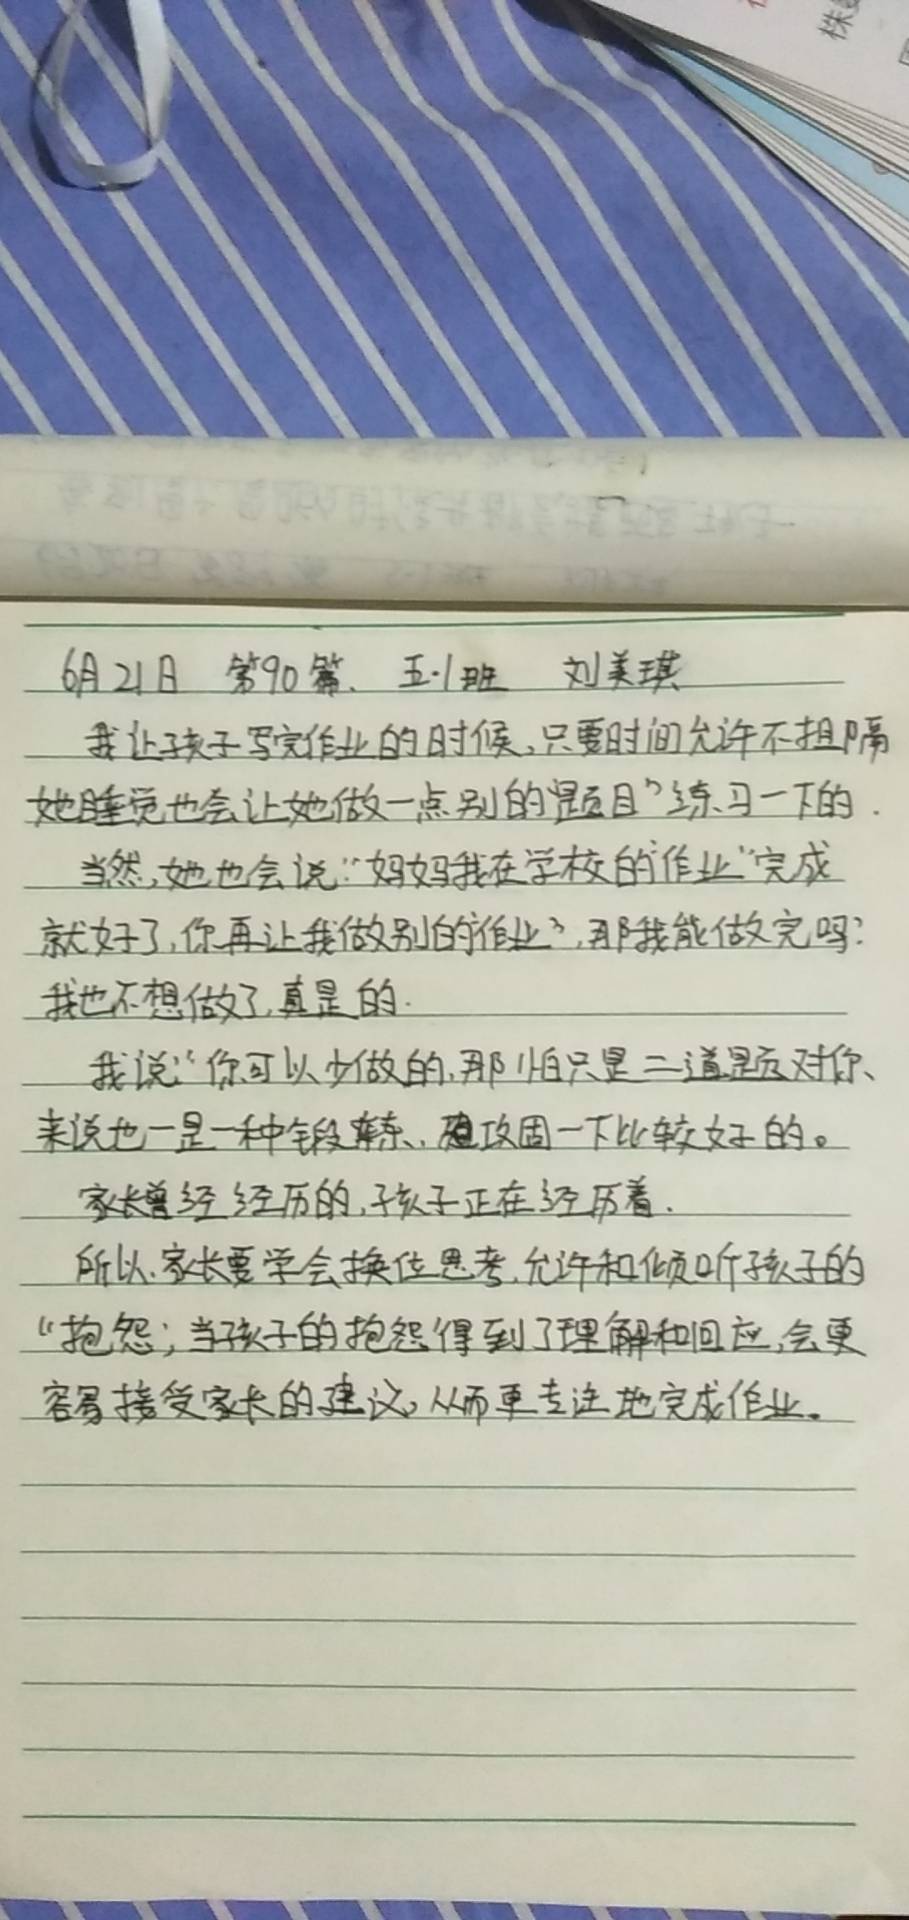 株
6月21日 第90篇. 五.1班 刘美琪
我让孩子写完作业的时候,只要时间允许不担隔
她睡觉也会让她做一点别的"题目"练习一下的.
当然,她也会说:"妈妈我在学校的"作业"完成
就好了,你再让我做别的"作业",那我能做完吗?
我也不想做了,真是的.
我说:"你可以少做的,那怕只是二道题对你、
来说也一是一种锻炼、攻固一下比较好的。
家长曾经经历的,孩子正在经历着.
所以、家长要学会换位思考,允许和倾听孩子的
"抱怨;当孩子的抱怨得到了理解和回应,会更
容易接受家长的建议,从而更专注地完成作业。